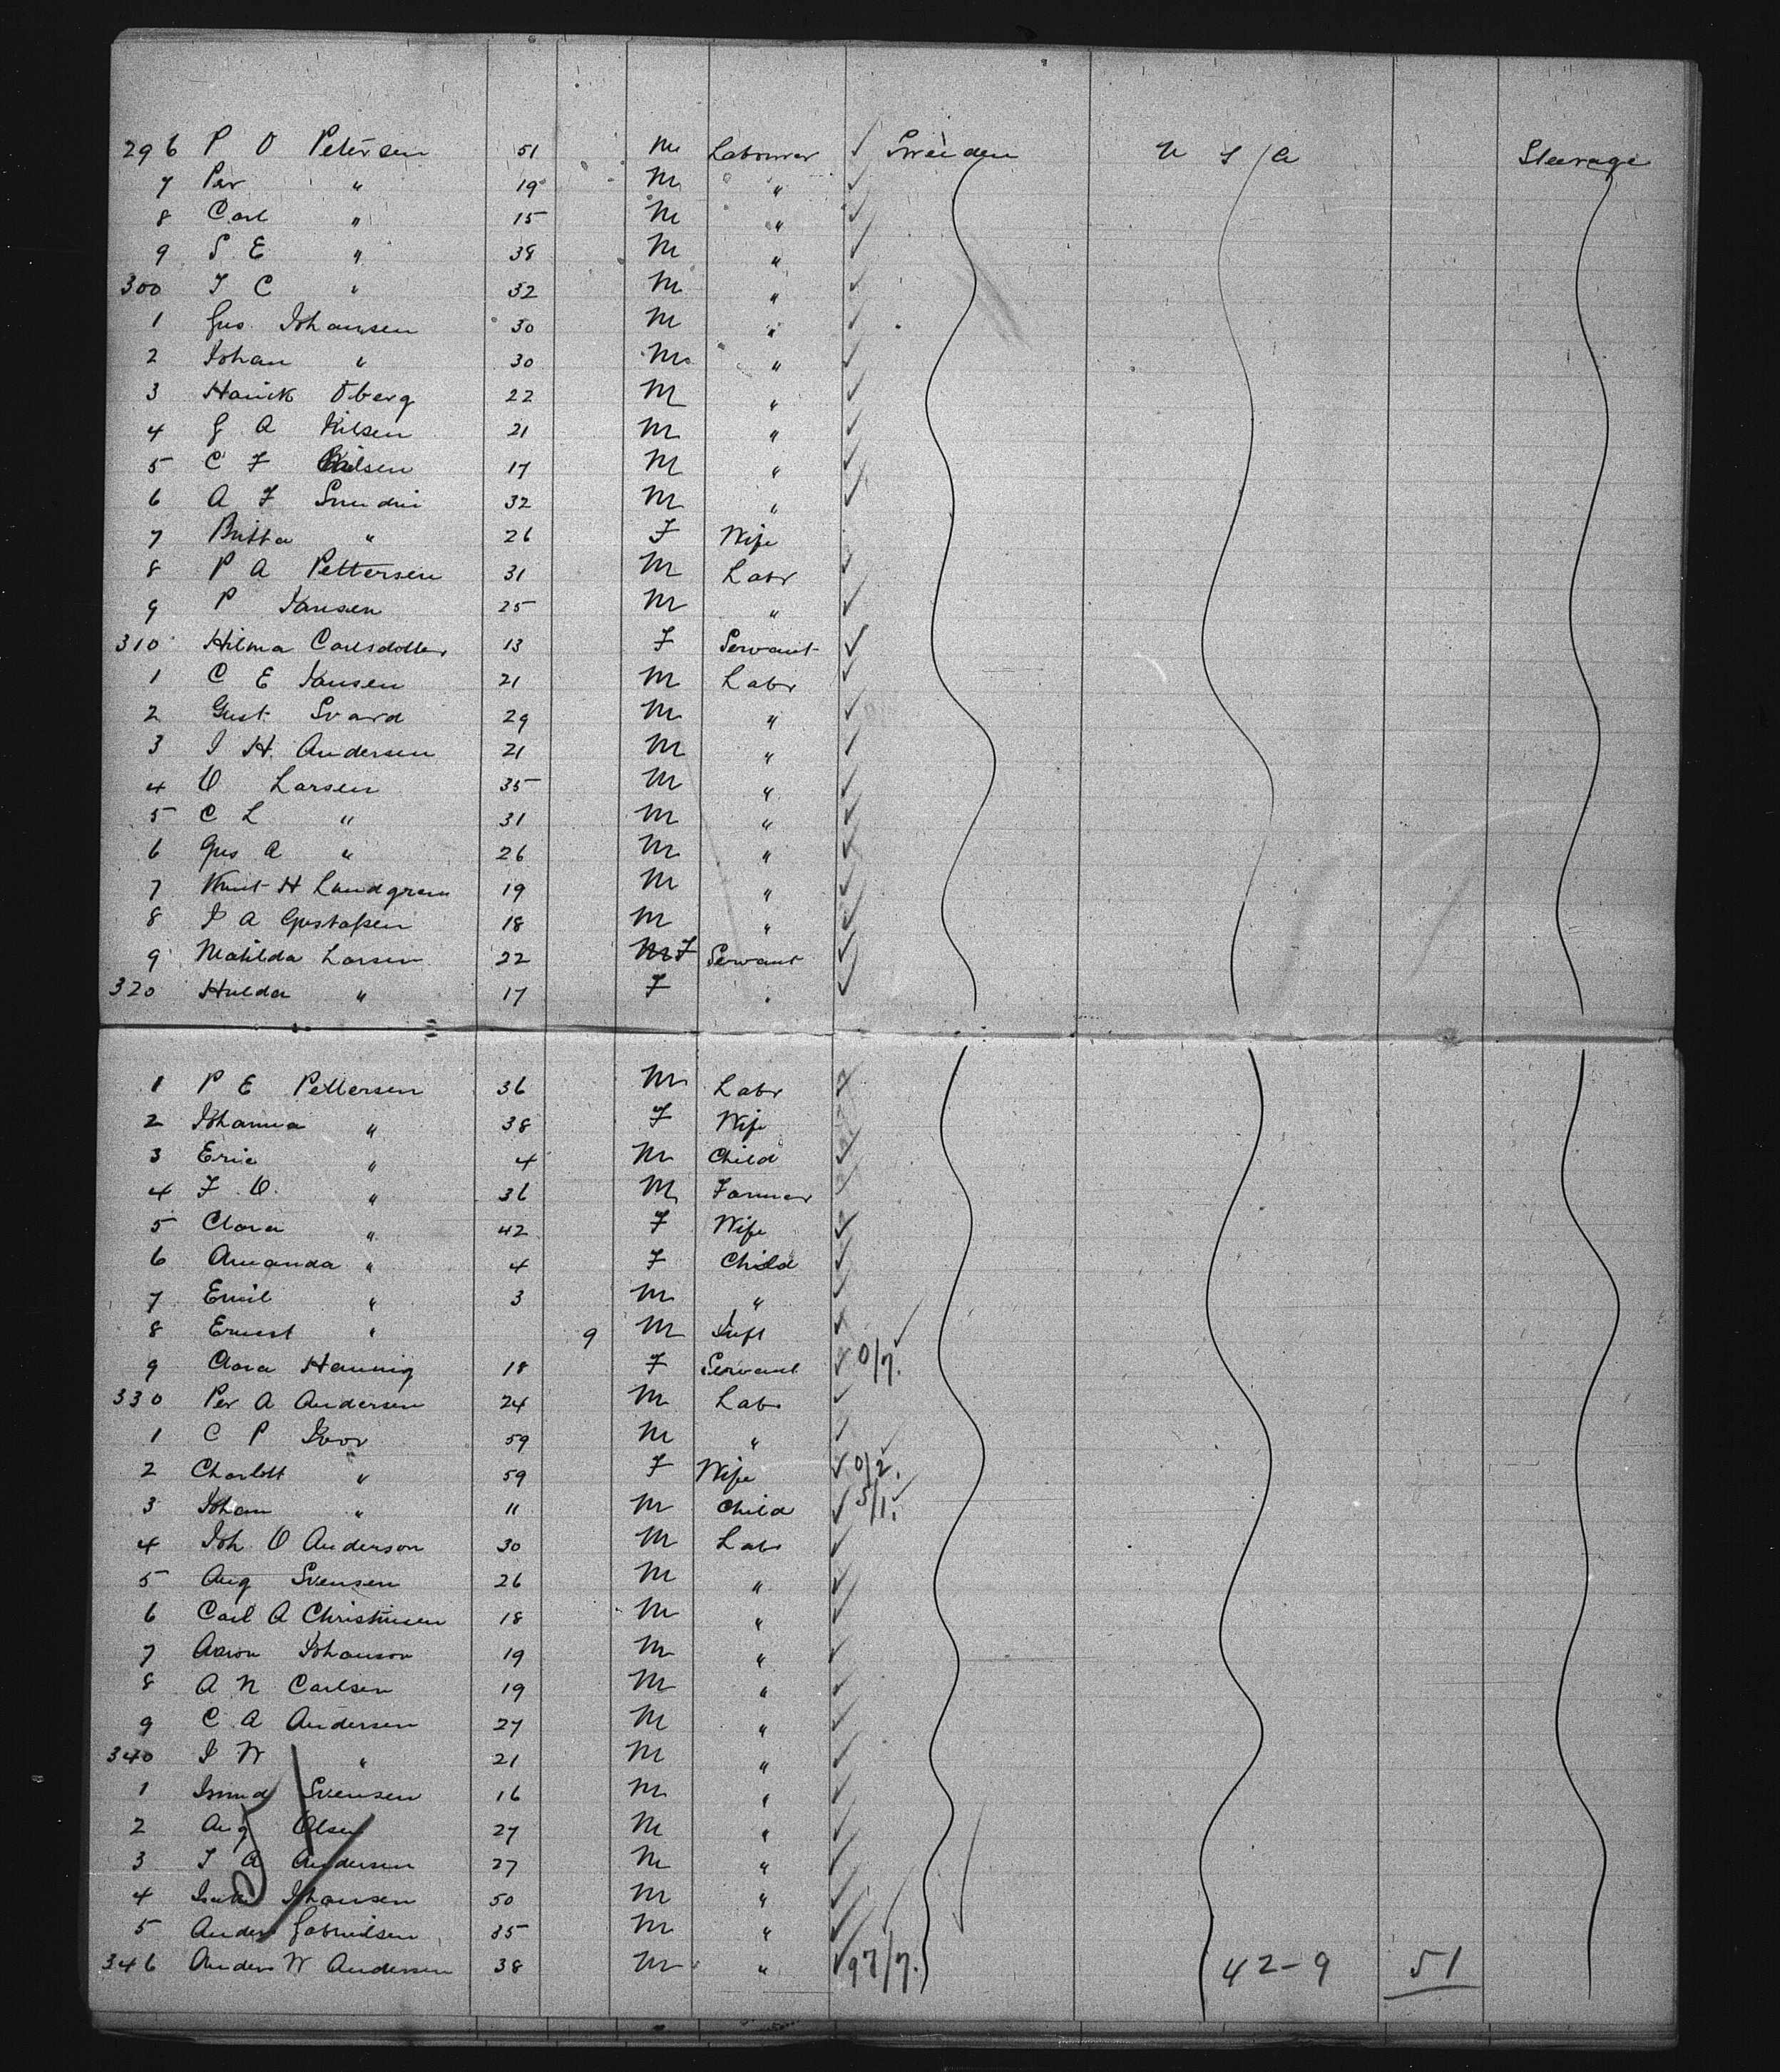 296 P O Petersen 51 M Labourer ✓ Sweiden U S A Steerage
7 Per " 19 M " ✓
8 Carl " 15 M " ✓
9 S E " 38 M " ✓
300 J C " 32 M " ✓
1 Gus. Johansen 30 M " ✓
2 Johan " 30 M " ✓
3 Oberg 22 M " ✓
4 G A Nilsen 21 M " ✓
5 C F Nilsen 17 M " ✓
6 A F 32 M " ✓
7 Britta " 26 F Wife
8 P A Pettersen 31 M Labr ✓
9 P Jansen 25 M " ✓
310 Hilma Carlsdotter 13 F Servant ✓
1 C E Jansen 21 M Labr ✓
2 Gust Svard 29 M " ✓
3 J H. Andersen 21 M " ✓
4 O Larsen 35 M " ✓
5 C L " 31 M " ✓
6 Gus A " 26 M " ✓
7 Knut H Lundgren 19 M " ✓
8 J A Gustafsen 18 M " ✓
9 Matilda Larsen 22 M F Servant ✓
320 Hulda " 17 F " ✓
1 P E Pettersen 36 M Labr ✓
2 Johanna " 38 F Wife ✓
3 Eric " 4 M Child ✓
4 F. O. " 36 M Farmer ✓
5 Clara " 42 F Wife ✓
6 Amanda " 4 F Child ✓
7 Emil " 3 M " ✓
8 Ernest " 9 M Inft ✓
9 Clara Hannig 18 F Servant ✓ 0/7. ✓
330 Per A Andersen 24 M Labr ✓
1 C P 59 M " ✓
2 Charlott " 59 F Wife ✓ 0/2. ✓
3 Johan " 11 M Child ✓ 5/1. ✓
4 Joh. O Anderson 30 M Labr ✓
5 Aug Svensen 26 M " ✓
6 Carl A Christensen 18 M " ✓
7 Aaron Johanson 19 M " ✓
8 A N Carlsen 19 M " ✓
9 C. A Andersen 27 M " ✓
340 J W " 21 M " ✓
1 Svensen 16 M " ✓
2 Aug Olsen 27 M " ✓
3 J A Andersen 27 M " ✓
4 Johansen 50 M " ✓
5 Anders Gabrielsen 35 M " ✓
346 Anders W Andersen 38 M " ✓ 97/7. 42-9 51